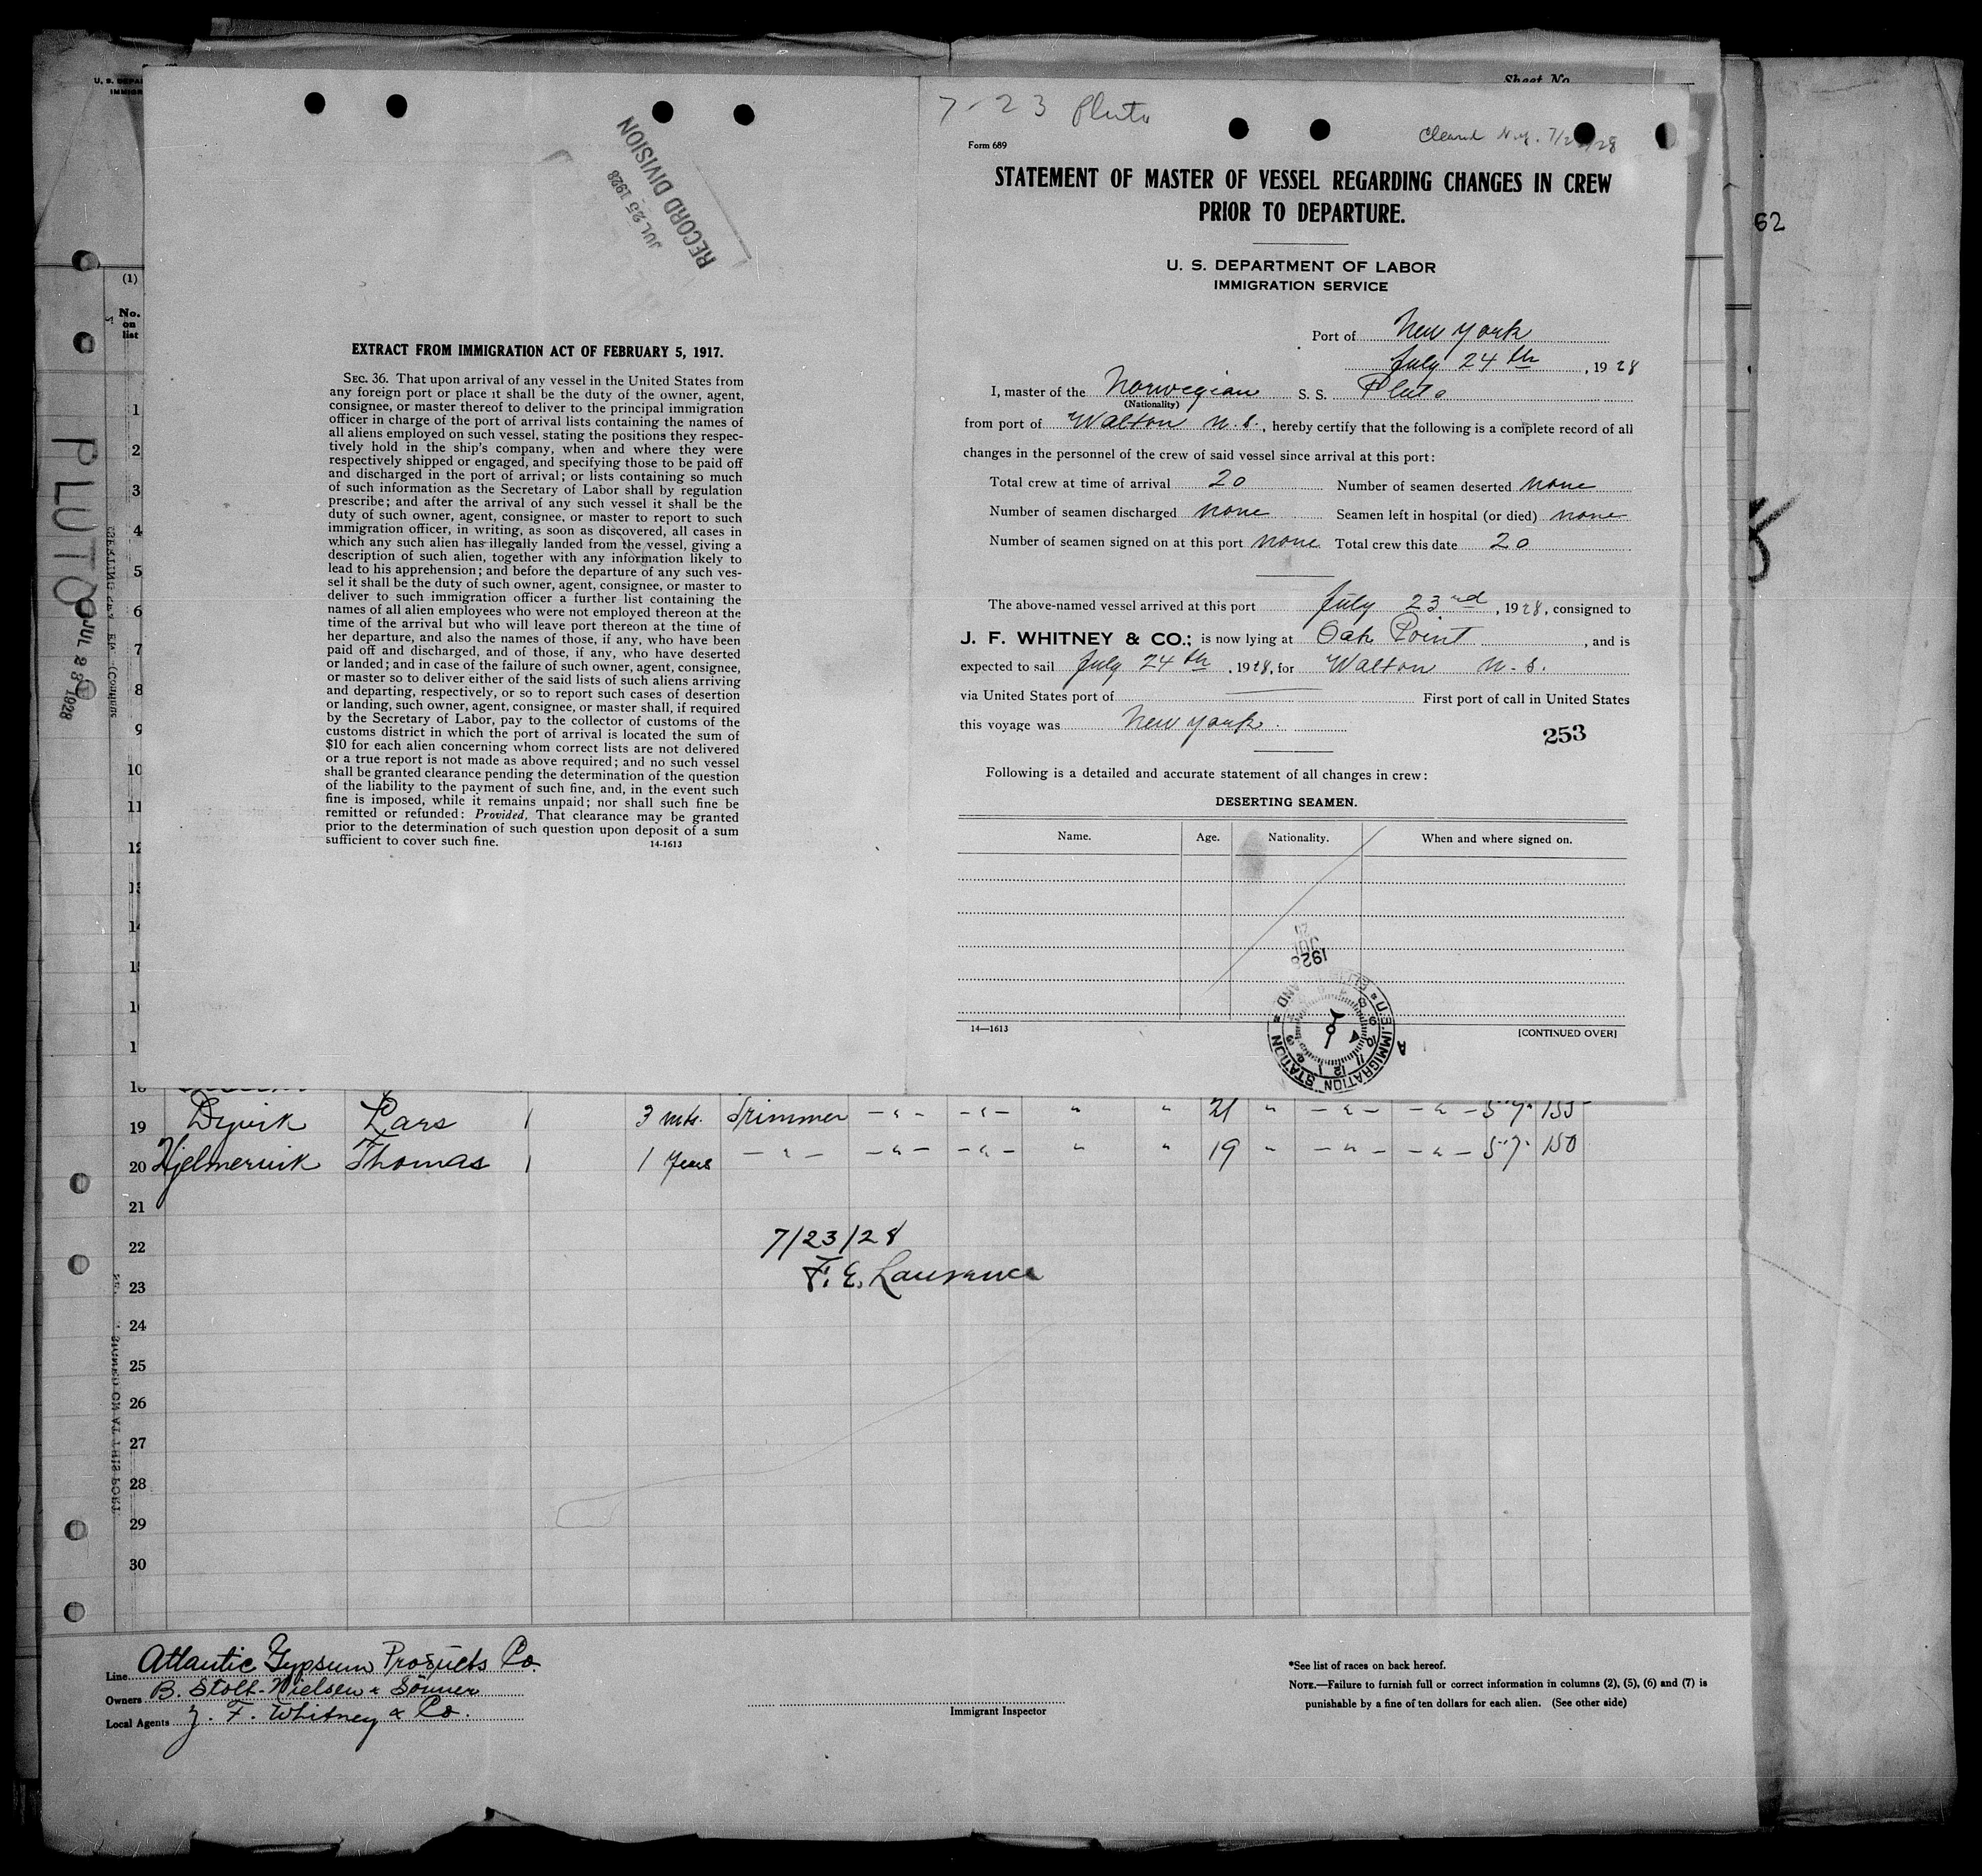 U. S. DEPA
IMMIGR
Sheet No.
62
RECORD DIVISION
JUL 25 1928
EXTRACT FROM IMMIGRATION ACT OF FEBRUARY 5, 1917.
SEC. 36. That upon arrival of any vessel in the United States from
any foreign port or place it shall be the duty of the owner, agent,
consignee, or master thereof to deliver to the principal immigration
officer in charge of the port of arrival lists containing the names of
all aliens employed on such vessel, stating the positions they respec-
tively hold in the ship's company, when and where they were
respectively shipped or engaged, and specifying those to be paid off
and discharged in the port of arrival; or lists containing so much
of such information as the Secretary of Labor shall by regulation
prescribe; and after the arrival of any such vessel it shall be the
duty of such owner, agent, consignee, or master to report to such
immigration officer, in writing, as soon as discovered, all cases in
which any such alien has illegally landed from the vessel, giving a
description of such alien, together with any information likely to
lead to his apprehension; and before the departure of any such ves-
sel it shall be the duty of such owner, agent, consignee, or master to
deliver to such immigration officer a further list containing the
names of all alien employees who were not employed thereon at the
time of the arrival but who will leave port thereon at the time of
her departure, and also the names of those, if any, who have been
paid off and discharged, and of those, if any, who have deserted
or landed; and in case of the failure of such owner, agent, consignee,
or master so to deliver either of the said lists of such aliens arriving
and departing, respectively, or so to report such cases of desertion
or landing, such owner, agent, consignee, or master shall, if required
by the Secretary of Labor, pay to the collector of customs of the
customs district in which the port of arrival is located the sum of
$10 for each alien concerning whom correct lists are not delivered
or a true report is not made as above required; and no such vessel
shall be granted clearance pending the determination of the question
of the liability to the payment of such fine, and, in the event such
fine is imposed, while it remains unpaid; nor shall such fine be
remitted or refunded: Provided, That clearance may be granted
prior to the determination of such question upon deposit of a sum
sufficient to cover such fine. 14-1613
7-23 Pluto
Cleared N.Y. 7/2 /28
Form 689
STATEMENT OF MASTER OF VESSEL REGARDING CHANGES IN CREW
PRIOR TO DEPARTURE.
U. S. DEPARTMENT OF LABOR
IMMIGRATION SERVICE
Port of New York
July 24th, 1928
I, master of the Norwegian S. S. Pluto
(Nationality)
from port of Walton N.S., hereby certify that the following is a complete record of all
changes in the personnel of the crew of said vessel since arrival at this port:
Total crew at time of arrival 20 Number of seamen deserted none
Number of seamen discharged none Seamen left in hospital (or died) none
Number of seamen signed on at this port none Total crew this date 20
The above-named vessel arrived at this port July 23rd, 1928, consigned to
J. F. WHITNEY & CO.; is now lying at Oak Point, and is
expected to sail July 24th, 1928, for Walton N.S.
via United States port of First port of call in United States
this voyage was New York.
253
Following is a detailed and accurate statement of all changes in crew:
DESERTING SEAMEN.
Name. Age. Nationality. When and where signed on.
1928
U.S. IMMIGRATION STATION
14—1613 [CONTINUED OVER]
PLUTO
JUL 23 1928
(1)
No.
on
list
1
2
3
4
5
6
7
8
9
10
11
12
19 Dyvik Lars 1 3 mts. Trimmer -"- -"- " " 21 " -"- -"- 5'7" 155
20 Hjelmervik Thomas 1 1 Year -"- -"- -"- " " 19 " -"- -"- 5'7" 150
21
22
23
24
25
26
27
28
29
30
7/23/28
F. E. Laurence
Line Atlantic Gypsum Products Co.
Owners B. Stolt-Nielsen & Sönner
Local Agents J. F. Whitney & Co.
Immigrant Inspector
*See list of races on back hereof.
NOTE.—Failure to furnish full or correct information in columns (2), (5), (6) and (7) is
punishable by a fine of ten dollars for each alien. (See other side)